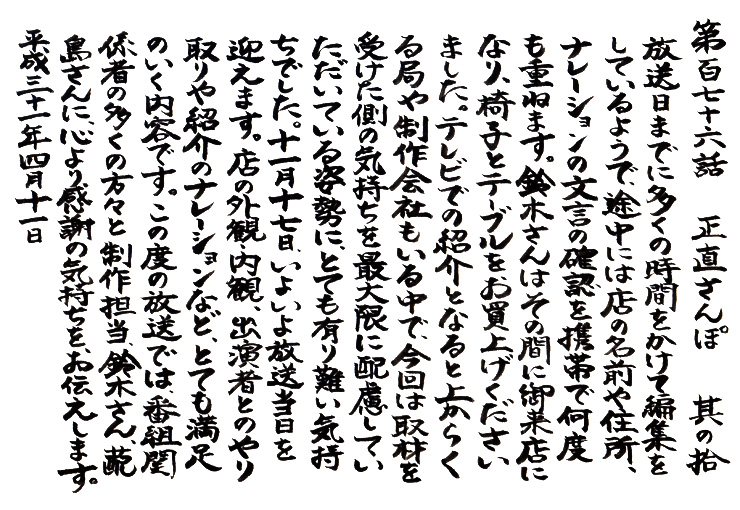 第百七十六話 正直さんぽ 其の拾
放送日までに多くの時間をかけて編集を
しているようで、途中には店の名前や住所、
ナレーションの文言の確認を携帯で何度
も重ねます。鈴木さんはその間に御来店に
なり、椅子とテーブルをお買上げください
ました。テレビでの紹介となると上からく
る局や制作会社もいる中で、今回は取材を
受けた側の気持ちを最大限に配慮してい
ただいている姿勢に、とても有り難い気持
ちでした。十一月十七日、いよいよ放送当日を
迎えます。店の外観、内観、出演者とのやり
取りや紹介のナレーションなど、とても満足
のいく内容です。この度の放送では、番組関
係者の多くの方々と制作担当、鈴木さん、蓜
島さんに、心より感謝の気持ちを、お伝えします。
平成三十一年四月十一日